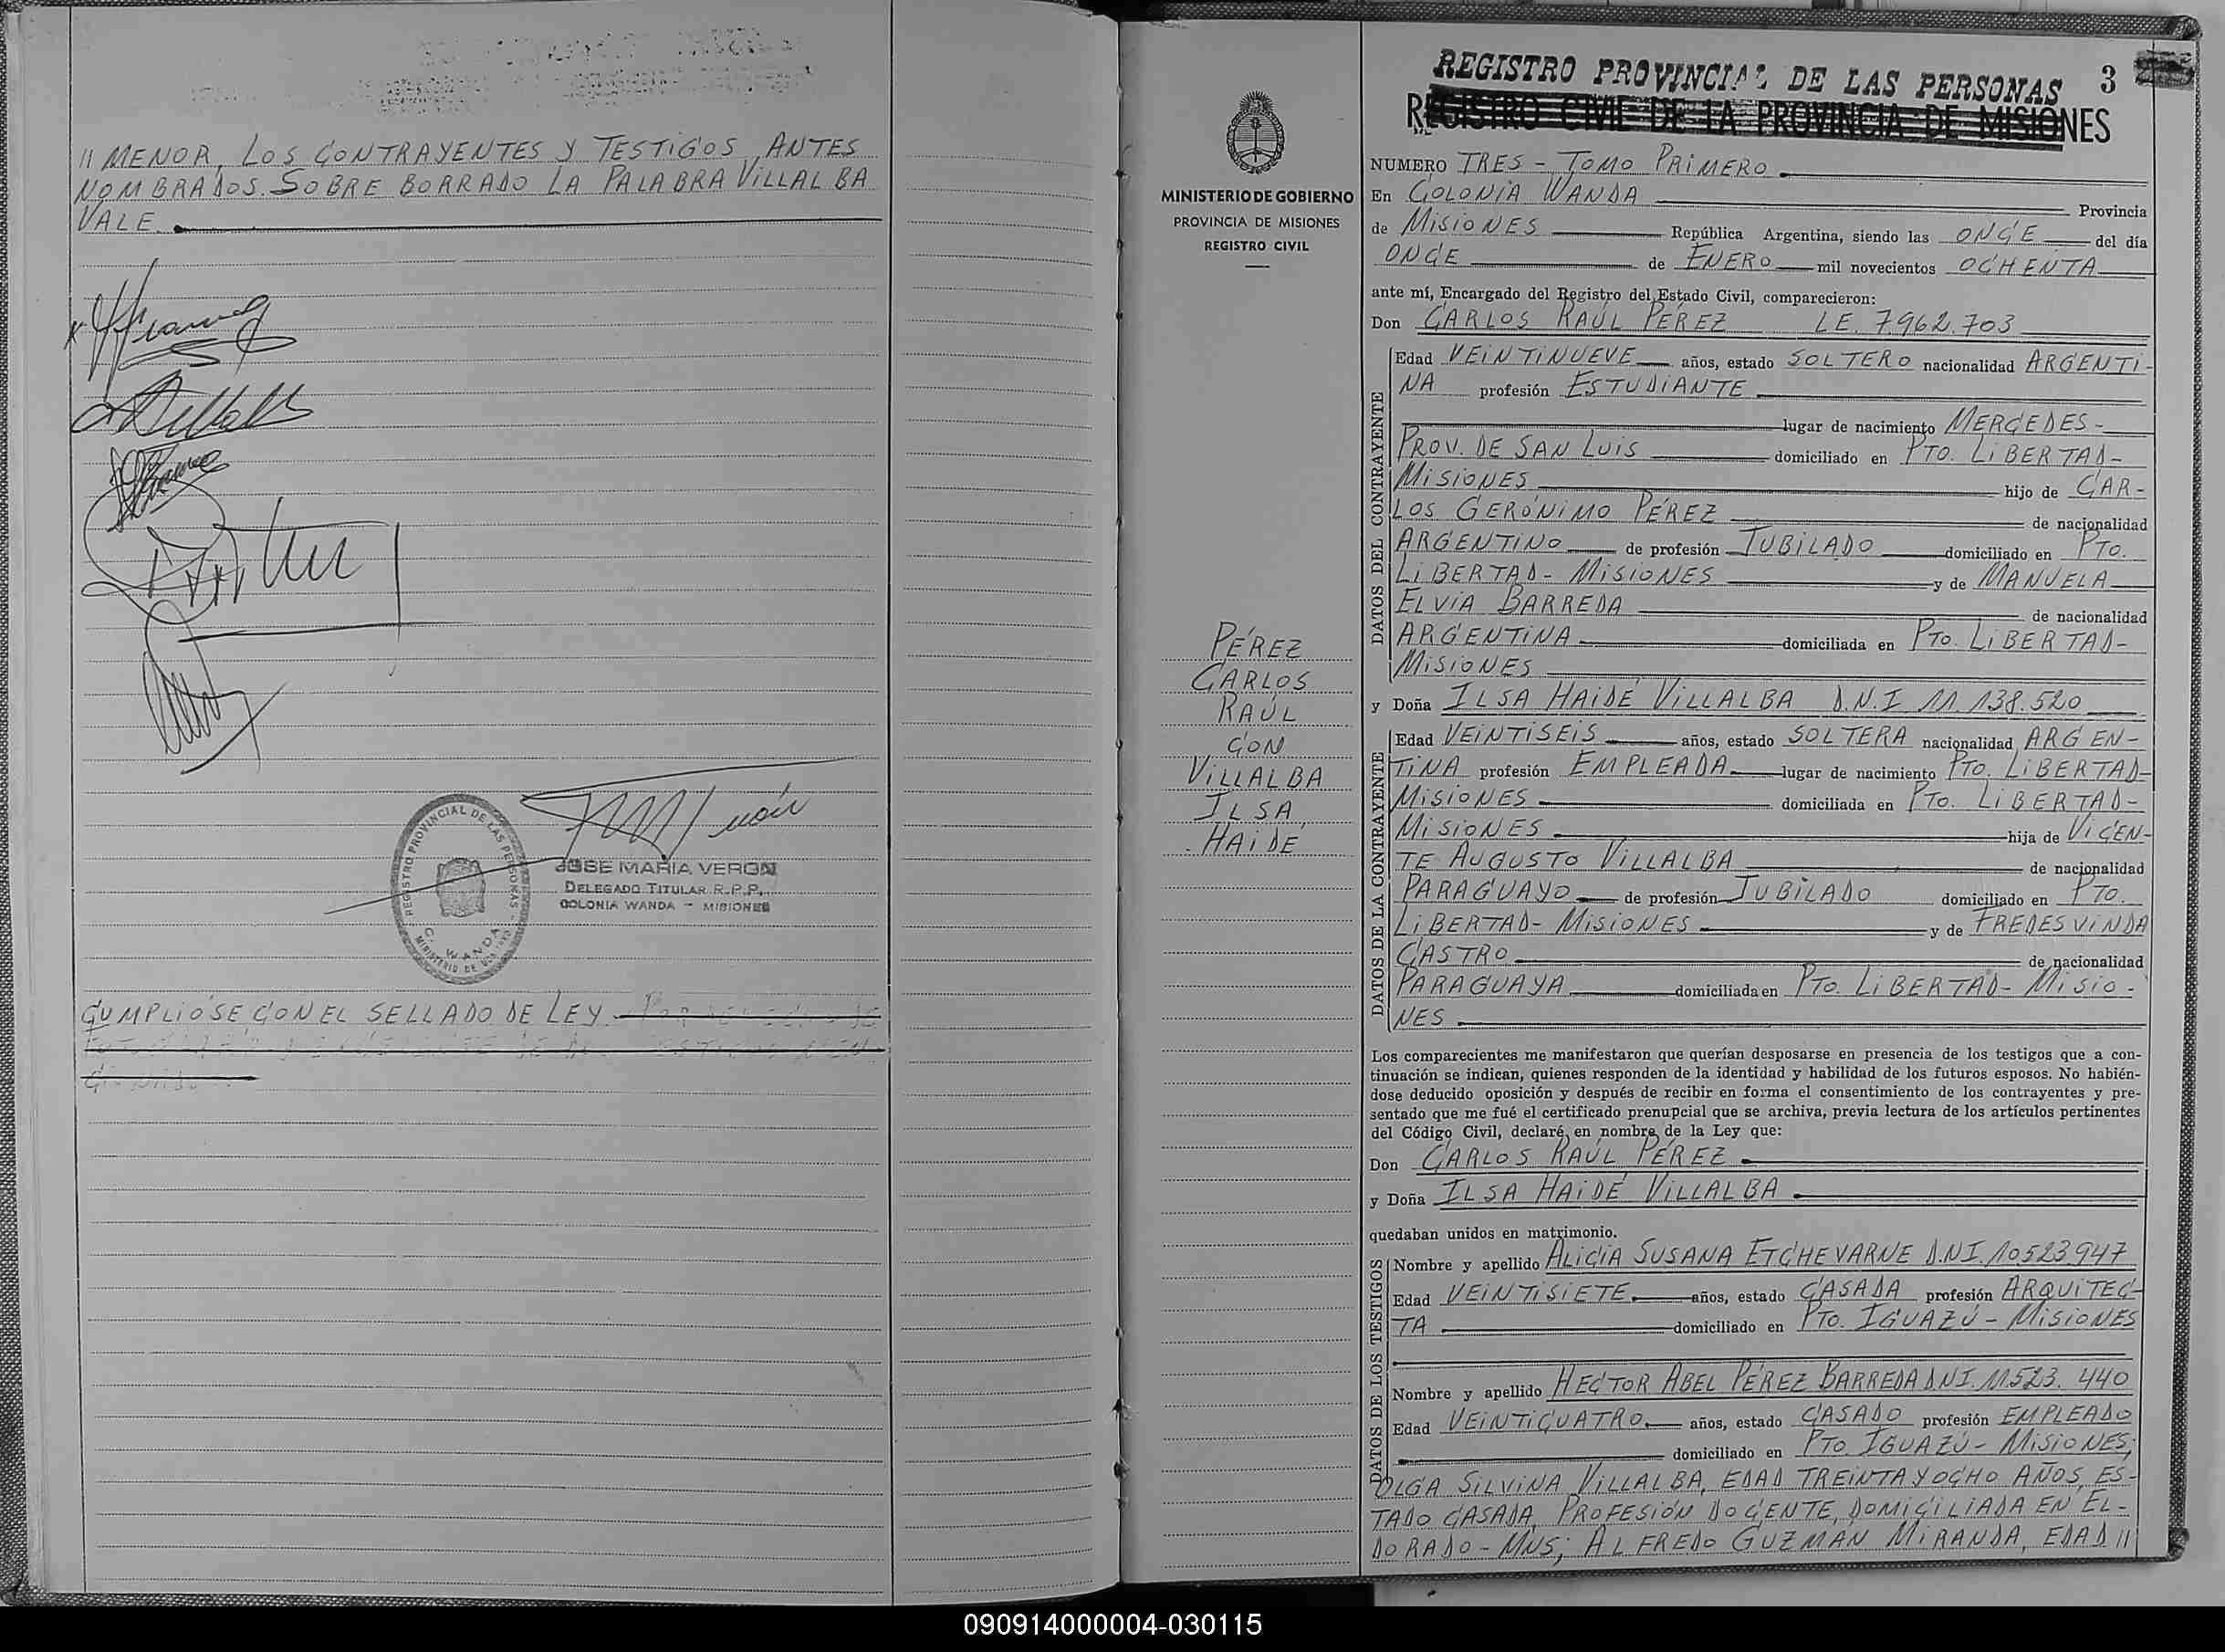 // MENOR, LOS CONTRAYENTES Y TESTIGOS ANTES
NOMBRADOS. SOBRE BORRADO LA PALABRA VILLALBA
VALE.
REGISTRO PROVINCIAL DE LAS PERSONAS
C. WANDA
MINISTERIO DE
JOSE MARIA VERON
DELEGADO TITULAR R.P.P.
COLONIA WANDA - MISIONES
CUMPLIÓSE CON EL SELLADO DE LEY.
MINISTERIO DE GOBIERNO
PROVINCIA DE MISIONES
REGISTRO CIVIL
PÉREZ
CARLOS
RAÚL
CON
VILLALBA
ILSA
HAIDÉ
REGISTRO PROVINCIAL DE LAS PERSONAS 3
REGISTRO CIVIL DE LA PROVINCIA DE MISIONES
NUMERO TRES - TOMO PRIMERO
En COLONIA WANDA Provincia
de MISIONES República Argentina, siendo las ONCE del día
ONCE de ENERO mil novecientos OCHENTA
ante mí, Encargado del Registro del Estado Civil, comparecieron:
Don CARLOS RAÚL PÉREZ L.E. 7.962.703
DATOS DEL CONTRAYENTE
Edad VEINTINUEVE años, estado SOLTERO nacionalidad ARGENTI-
NA profesión ESTUDIANTE
lugar de nacimiento MERCEDES-
PROV. DE SAN LUIS domiciliado en PTO. LIBERTAD-
MISIONES hijo de CAR-
LOS GERÓNIMO PÉREZ de nacionalidad
ARGENTINO de profesión JUBILADO domiciliado en PTO.
LIBERTAD- MISIONES y de MANUELA
ELVIA BARREDA de nacionalidad
ARGENTINA domiciliada en PTO. LIBERTAD-
MISIONES
y Doña ILSA HAIDÉ VILLALBA D.N.I 11.138.520
DATOS DE LA CONTRAYENTE
Edad VEINTISEIS años, estado SOLTERA nacionalidad ARGEN-
TINA profesión EMPLEADA lugar de nacimiento PTO. LIBERTAD-
MISIONES domiciliada en PTO. LIBERTAD-
MISIONES hija de VICEN-
TE AUGUSTO VILLALBA de nacionalidad
PARAGUAYO de profesión JUBILADO domiciliado en PTO.
LIBERTAD- MISIONES y de FREDESVINDA
CASTRO de nacionalidad
PARAGUAYA domiciliada en PTO. LIBERTAD- MISIO-
NES
Los comparecientes me manifestaron que querían desposarse en presencia de los testigos que a con-
tinuación se indican, quienes responden de la identidad y habilidad de los futuros esposos. No habién-
dose deducido oposición y después de recibir en forma el consentimiento de los contrayentes y pre-
sentado que me fué el certificado prenupcial que se archiva, previa lectura de los artículos pertinentes
del Código Civil, declaré en nombre de la Ley que:
Don CARLOS RAÚL PÉREZ
y Doña ILSA HAIDÉ VILLALBA
quedaban unidos en matrimonio.
DATOS DE LOS TESTIGOS
Nombre y apellido ALICIA SUSANA ETCHEVARNE D.N.I. 10523947
Edad VEINTISIETE años, estado CASADA profesión ARQUITEC-
TA domiciliado en PTO. IGUAZÚ - MISIONES
Nombre y apellido HECTOR ABEL PÉREZ BARREDA D.N.I. 11.523.440
Edad VEINTICUATRO. años, estado CASADO profesión EMPLEADO
domiciliado en PTO IGUAZÚ - MISIONES;
OLGA SILVINA VILLALBA, EDAD TREINTA Y OCHO AÑOS, ES-
TADO CASADA, PROFESIÓN DOCENTE, DOMICILIADA EN EL-
DORADO - MNS; ALFREDO GUZMAN MIRANDA, EDAD //
090914000004-030115